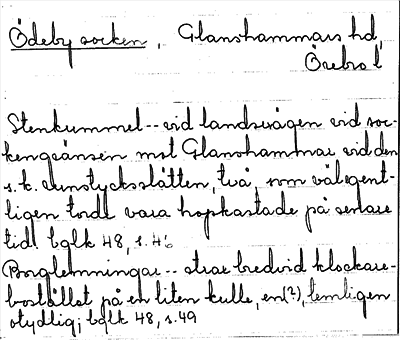 Ödeby socken, Glanshammars hd,
Örebro l
Stenkummel -- vid landsvägen vid soc-
kengränsen mot Glanshammar vid den
s.k. runstycksslätten, två, som välegent-
ligen torde vara hopkastade på senare
tid. bglk 48, s. 46
Borglemningar -- strax bredvid klockare-
bostället på en liten kulle, en(?), lemligen
otydlig; bglk 48, s. 49